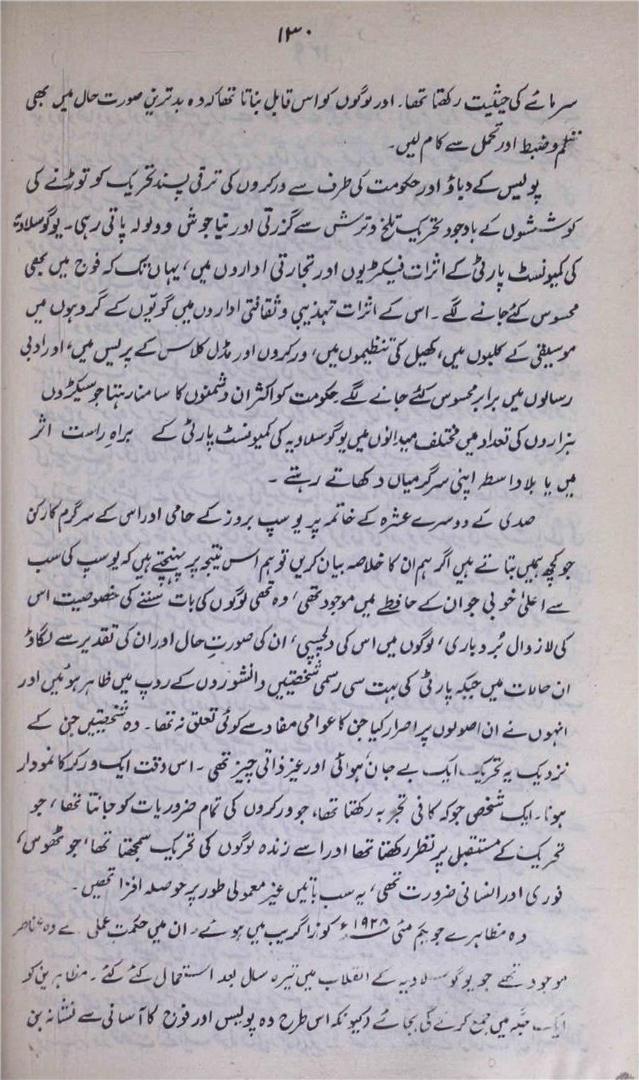 ۱۳۰
سرمائے کی حیثیت رکھتا تھا۔ اور لوگوں کو اس قابل بناتا تھا کہ وہ بدترین صورت حال میں بھی
نظم و ضبط اور تحمل سے کام لیں۔
پولیس کے دباؤ اور حکومت کی طرف سے ورکروں کی ترقی پسند تحریک کو توڑنے کی
کوششوں کے باوجود تحریک تلخ و ترش سے گزرتی اور نیا جوش و ولولہ پاتی رہی۔ یوگوسلاویہ
کی کمیونسٹ پارٹی کے اثرات فیکٹریوں اور تجارتی اداروں میں، یہاں تک کہ فوج میں بھی
محسوس کئے جانے لگے۔ اس کے اثرات تہذیبی و ثقافتی اداروں میں گویّوں کے گروپوں میں
موسیقی کے کلبوں میں، کھیل کی تنظیموں میں، ورکروں اور مڈل کلاس کے پریس میں، اور ادبی
رسالوں میں برابر محسوس کئے جانے لگے۔ حکومت کو اکثر ان دشمنوں کا سامنا رہتا جو سیکڑوں
ہزاروں کی تعداد میں مختلف میدانوں میں یوگوسلاویہ کی کمیونسٹ پارٹی کے براہ راست اثر
میں یا بلاواسطہ اپنی سرگرمیاں دکھاتے رہتے۔
صدی کے دوسرے عشرہ کے خاتمہ پر یوسپ بروز کے حامی اور اس کے سرگرم کارکن
جو کچھ ہمیں بتاتے ہیں اگر ہم ان کا خلاصہ بیان کریں تو ہم اس نتیجہ پر پہنچتے ہیں کہ یوسپ کی سب
سے اعلیٰ خوبی جو ان کے حافظے میں موجود تھی، وہ تھی لوگوں کی بات سننے کی خصوصیت اس
کی لازوال بُردباری، لوگوں میں اس کی دلچسپی، ان کی صورتِ حال اور ان کی تقدیر سے لگاؤ
ان حالات میں جبکہ پارٹی کی بہت سی رسمی شخصیتیں دانشوروں کے روپ میں ظاہر ہوئیں اور
انہوں نے ان اصولوں پر اصرار کیا جن کا عوامی مفاد سے کوئی تعلق نہ تھا۔ وہ شخصیتیں جن کے
نزدیک یہ تحریک ایک بے جان ہوائی اور غیر ذاتی چیز تھی۔ اس وقت ایک ورکر کا نمودار
ہونا۔ ایک شخص جو کہ کافی تجربہ رکھتا تھا، جو ورکروں کی تمام ضروریات کو جانتا تھا، جو
تحریک کے مستقبل پر نظر رکھتا تھا اور اسے زندہ لوگوں کی تحریک سمجھتا تھا، جو ٹھوس،
فوری اور انسانی ضرورت تھی، یہ سب باتیں غیر معمولی طور پر حوصلہ افزا تھیں۔
وہ مظاہرے جو یکم مئی ۱۹۲۸ء کو زاگریب میں ہوئے، ان میں حکمت عملی کے وہ عناصر
موجود تھے جو یوگوسلاویہ کے انقلاب میں تیرہ سال بعد استعمال کئے گئے۔ مظاہرین کو
ایک جگہ میں جمع کرنے کی بجائے (کیونکہ اس طرح وہ پولیس اور فوج کا آسانی سے نشانہ بن